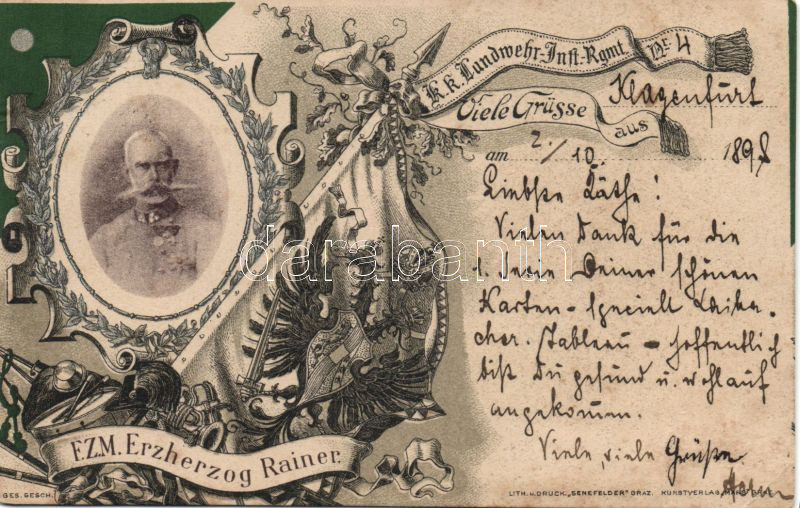 K.k. Landwehr-Inft.-Rgmt. Nr. 4
Viele Grüsse aus Klagenfurt
am 2./10. 1898
Liebste Käthe!
Vielen Dank für die
1. Serie Deiner schönen
Karten - speciell
Tableau - hoffentlich
bist Du gesund u. wohlauf
angekommen.
Viele, viele Grüße
F.Z.M. Erzherzog Rainer.
darabanth.com
GES. GESCH.
LITH. U. DRUCK. „SENEFELDER" GRAZ. KUNSTVERLAG